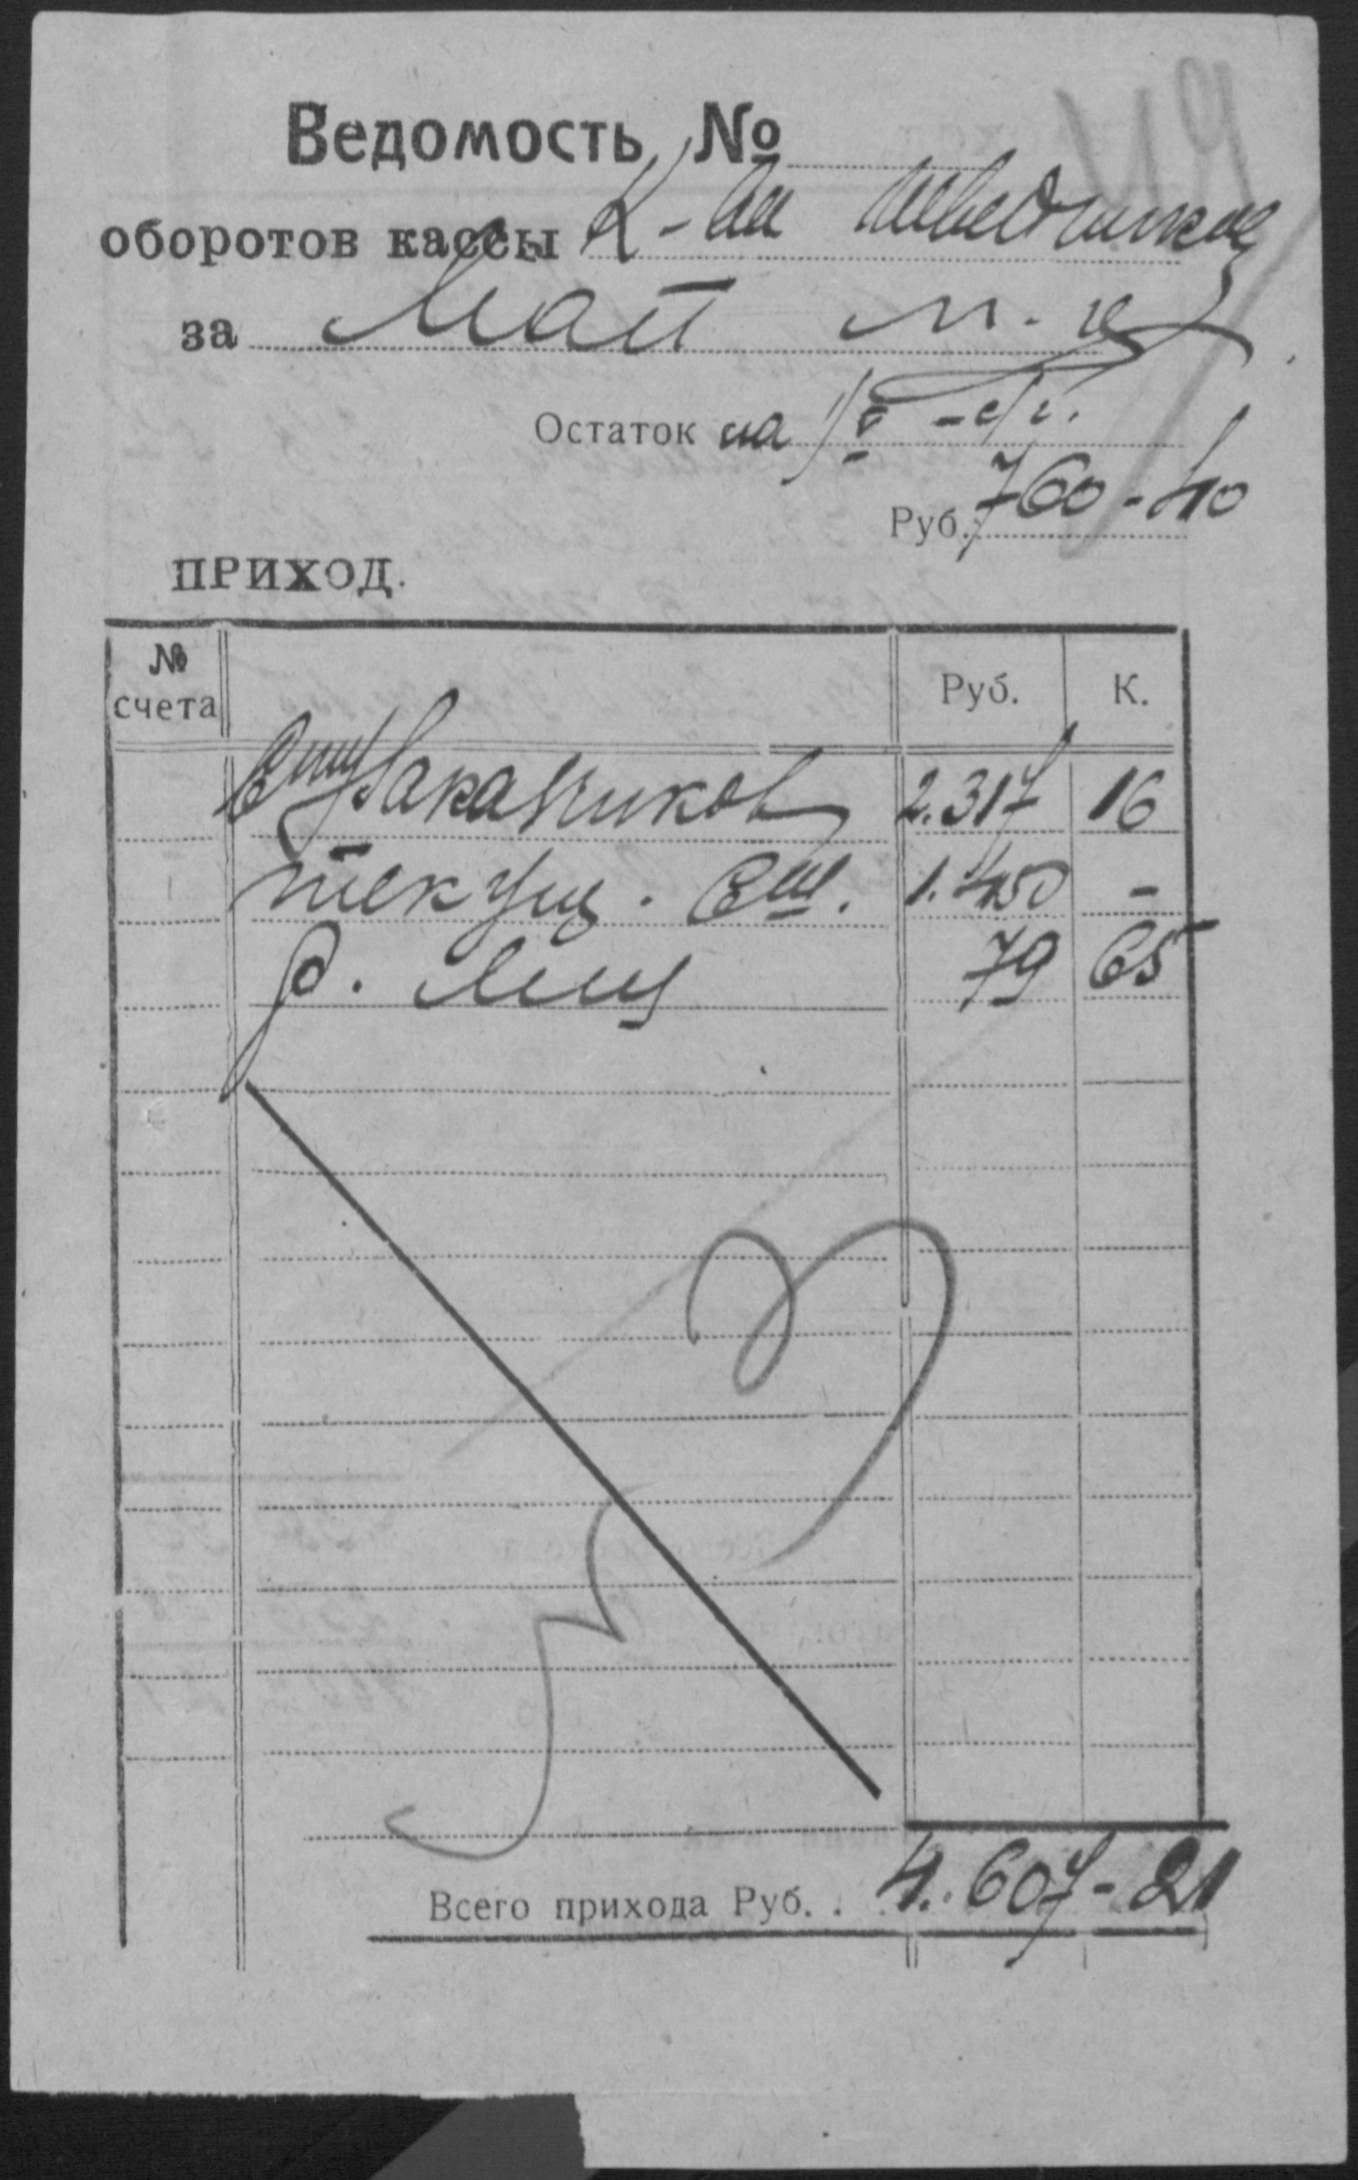 119
Ведомость №
оборотов кассы К-ва
за Май м-ц
Остаток на 1/V - с/г.
Руб. 760-40
ПРИХОД.
№ счета Руб. К.
Заказчиков 2.317 16
текущ. сч. 1.450 -
79 65
Всего прихода Руб. . 4.607-21